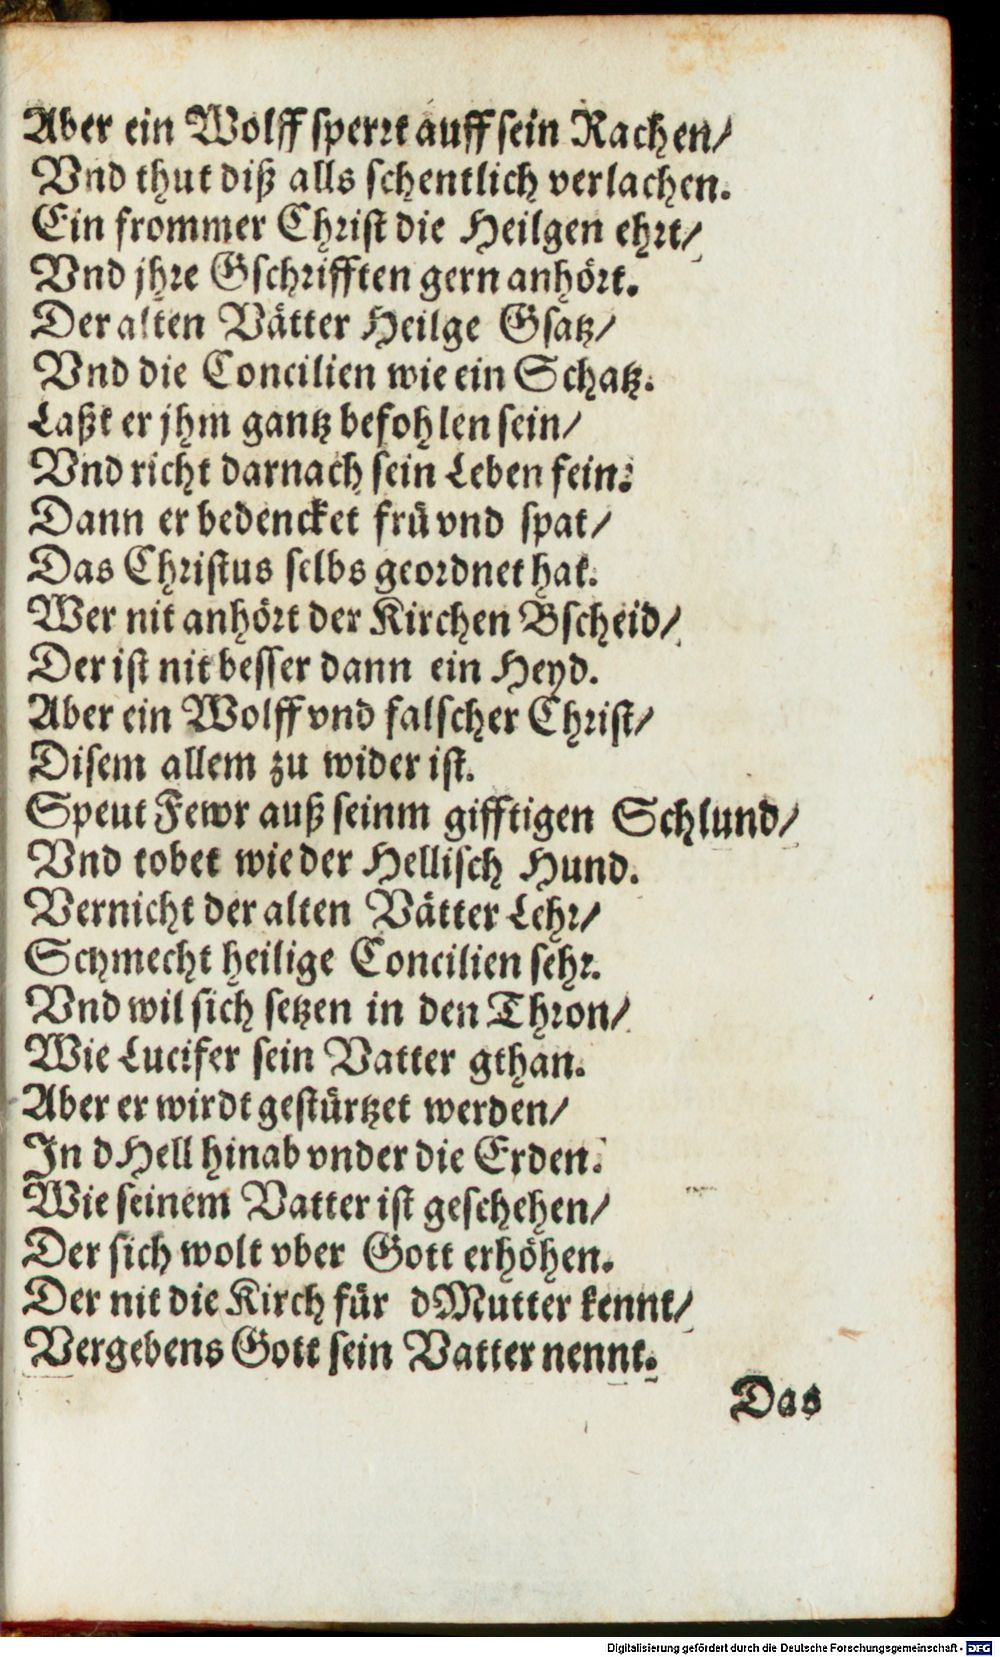 Aber ein Wolff sperrt auff sein Rachen/
Vnd thut diß alls schentlich verlachen.
Ein frommer Christ die Heilgen ehrt/
Vnd jhre Gschrifften gern anhört.
Der alten Vätter Heilge Gsatz/
Vnd die Concilien wie ein Schatz.
Laßt er jhm gantz befohlen sein/
Vnd richt darnach sein Leben fein:
Dann er bedencket frü vnd spat/
Das Christus selbs geordnet hat.
Wer nit anhört der Kirchen Bscheid/
Der ist nit besser dann ein Heyd.
Aber ein Wolff vnd falscher Christ/
Disem allem zu wider ist.
Speut Fewr auß seinm gifftigen Schlund/
Vnd tobet wie der Hellisch Hund.
Vernicht der alten Vätter Lehr/
Schmecht heilige Concilien sehr.
Vnd wil sich setzen in den Thron/
Wie Lucifer sein Vatter gthan.
Aber er wirdt gestürtzet werden/
In d Hell hinab vnder die Erden.
Wie seinem Vatter ist geschehen/
Der sich wolt vber Gott erhöhen.
Der nit die Kirch für dMutter kennt/
Vergebens Gott sein Vatter nennt.
Das
Digitalisierung gefördert durch die Deutsche Forschungsgemeinschaft - DFG